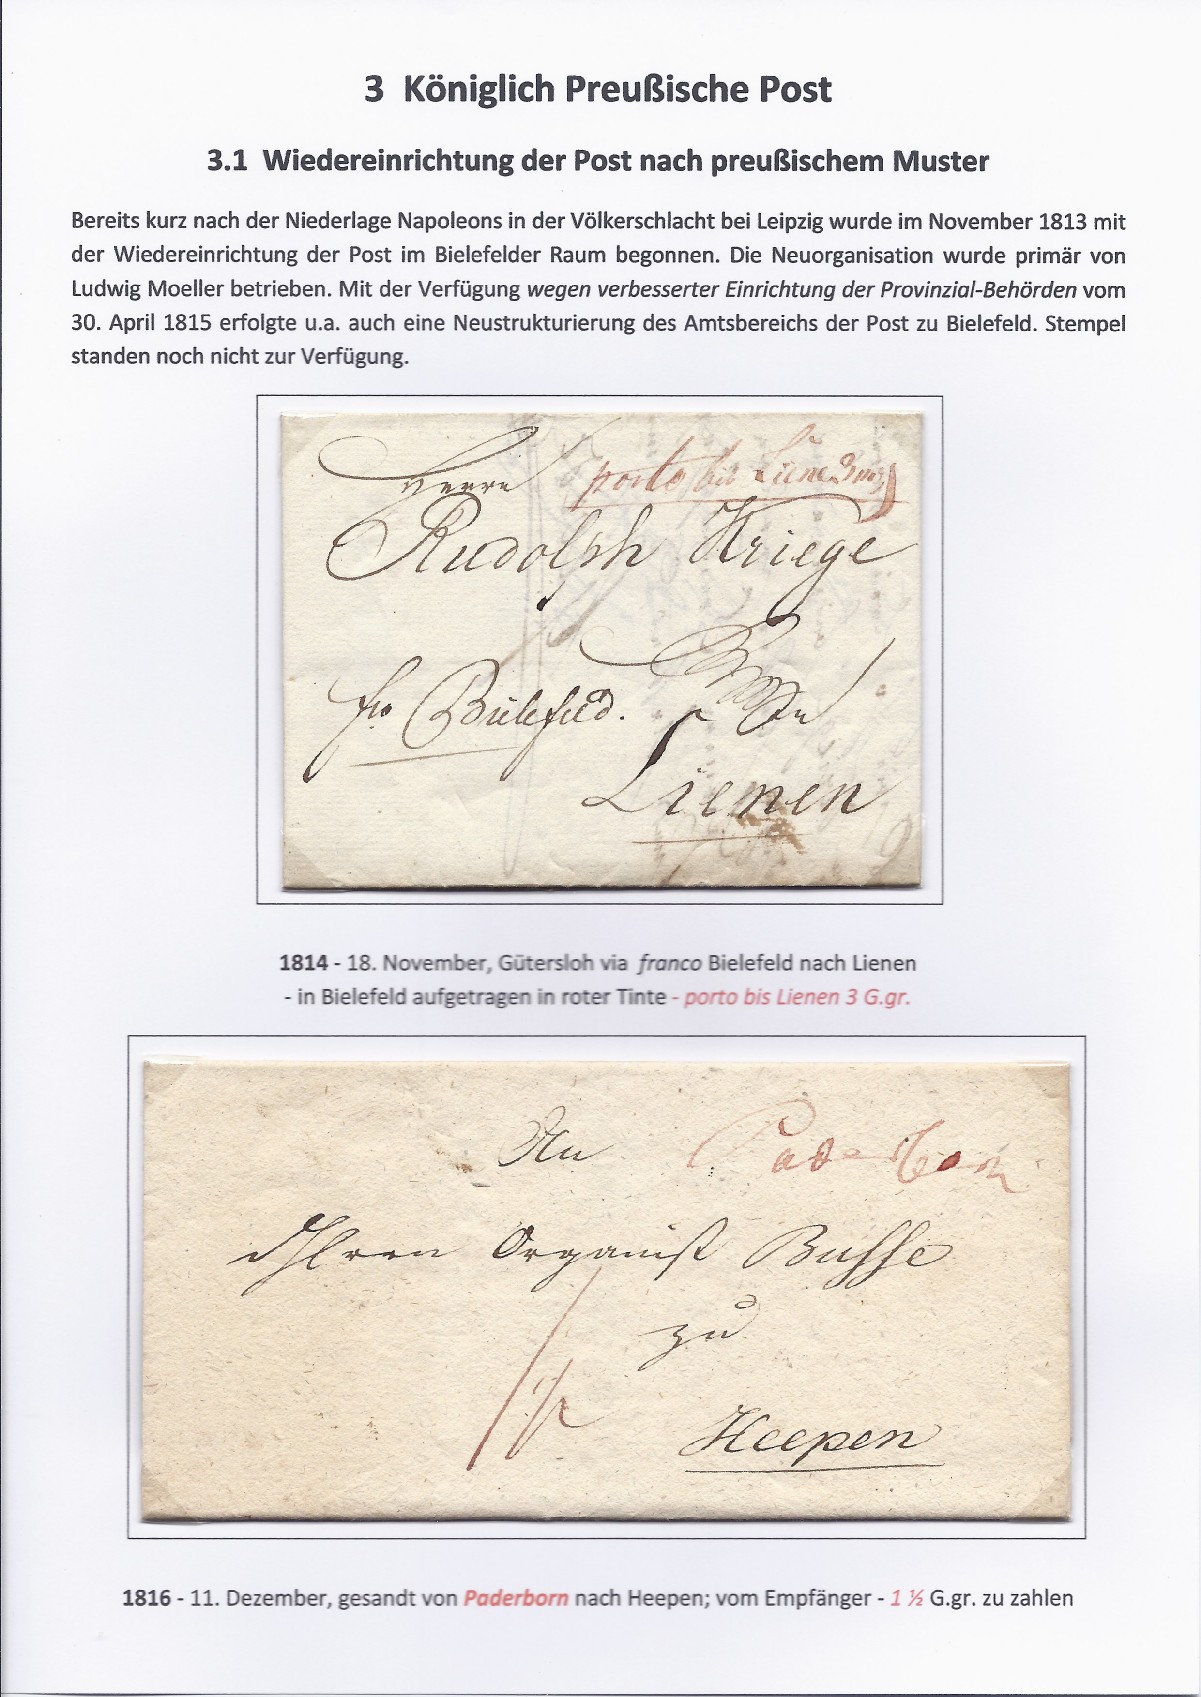 3 Königlich Preußische Post
3.1 Wiedereinrichtung der Post nach preußischem Muster
Bereits kurz nach der Niederlage Napoleons in der Völkerschlacht bei Leipzig wurde im November 1813 mit
der Wiedereinrichtung der Post im Bielefelder Raum begonnen. Die Neuorganisation wurde primär von
Ludwig Moeller betrieben. Mit der Verfügung wegen verbesserter Einrichtung der Provinzial-Behörden vom
30. April 1815 erfolgte u.a. auch eine Neustrukturierung des Amtsbereichs der Post zu Bielefeld. Stempel
standen noch nicht zur Verfügung.
porto bis Lienen 3
Herrn
Rudolph Kriege
In
fro Bielefeld.
Lienen
1814 - 18. November, Gütersloh via franco Bielefeld nach Lienen
- in Bielefeld aufgetragen in roter Tinte - porto bis Lienen 3 G.gr.
An Paderborn
Herrn Organist Busse
zu
1½
Heepen
1816 - 11. Dezember, gesandt von Paderborn nach Heepen; vom Empfänger - 1 ½ G.gr. zu zahlen